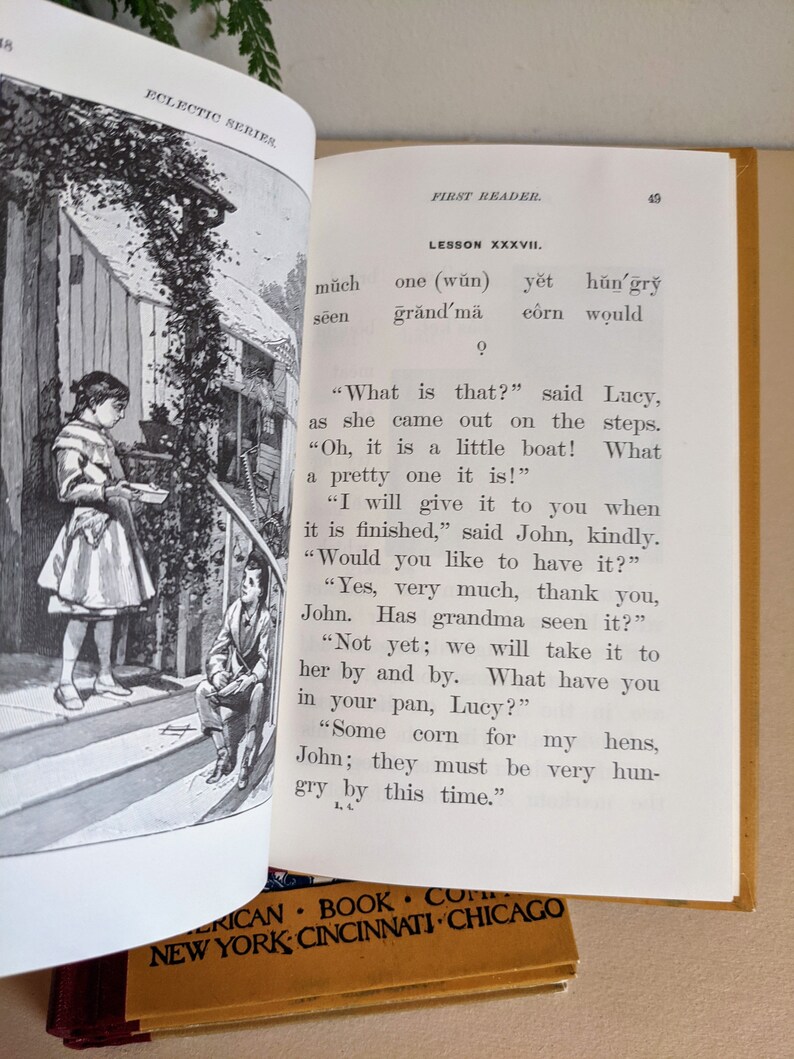 48
ECLECTIC SERIES.
FIRST READER. 49
LESSON XXXVII.
mŭch one (wŭn) yĕt hŭṉ′ḡry̆
sēen ḡrănd′mä côrn wo̤uld
o̤
“What is that?” said Lucy,
as she came out on the steps.
“Oh, it is a little boat! What
a pretty one it is!”
“I will give it to you when
it is finished,” said John, kindly.
“Would you like to have it?”
“Yes, very much, thank you,
John. Has grandma seen it?”
“Not yet; we will take it to
her by and by. What have you
in your pan, Lucy?”
“Some corn for my hens,
John; they must be very hun-
gry by this time.”
1, 4.
BOOK
NEW YORK · CINCINNATI · CHICAGO